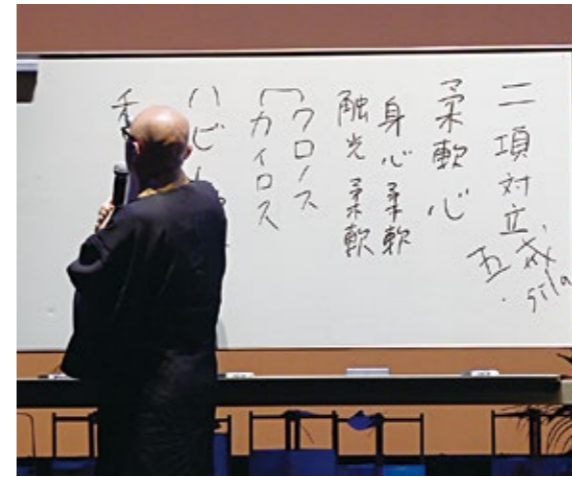 二項対立
五戒
・sīla
柔軟心
身心柔軟
触光柔軟
クロノス
カイロス
ハビ